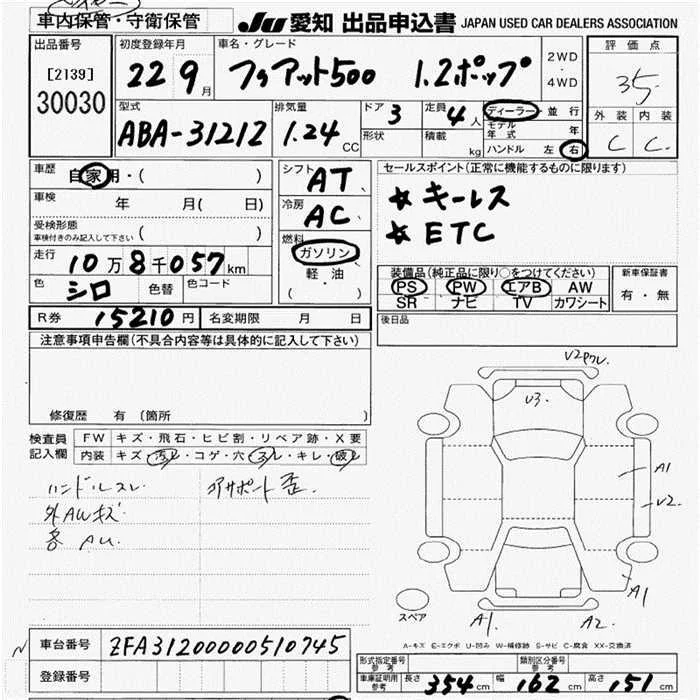 車内保管・守衛保管
JU 愛知 出品申込書 JAPAN USED CAR DEALERS ASSOCIATION
出品番号
[2139]
30030
初度登録年月
22 9月
車名・グレード
フィアット500 1.2ポップ
2WD
・
4WD
評価点
3.5
外装 内装
C C
型式
ABA-31212
排気量
1.24 CC
ドア 3
形状
定員 4人
積載 kg
ディーラー 並行
モデル年式 年
ハンドル 左 右
車歴 自家用・( )
車検 年 月( 日)
受検形態
車検付きのみ記入して下さい ( )
走行 10万8千057km
色 シロ 色替 色コード
シフト AT
冷房 AC
燃料
ガソリン
軽・油
( )
セールスポイント(正常に機能するものに限ります)
☆キーレス
☆ETC
装備品(純正品に限り○をつけてください)
PS PW エアB AW
SR ナビ TV カワシート
新車保証書
有・無
R券 15210円 名変期限 月 日
後日品
注意事項申告欄(不具合内容等は具体的に記入して下さい)
修復歴 有 〔箇所 〕
検査員記入欄
FW キズ・飛石・ヒビ割・リペア跡・X要
内装 キズ・汚レ・コゲ・穴・スレ・キレ・破レ
ハンドルスレ
外AWキズ
各AU.
アサポート歪.
V2ワレ
U3.
A1
U2.
A1
A1.
A2.
スペア
A-キズ E-エクボ U-凹み W-補修跡 S-サビ C-腐食 XX-交換済
車台番号 ZFA31200000510745
登録番号
形式指定番号 参考
類別区分番号 参考
車庫証明用 参考 長さ 354cm 幅 162cm 高さ 151cm